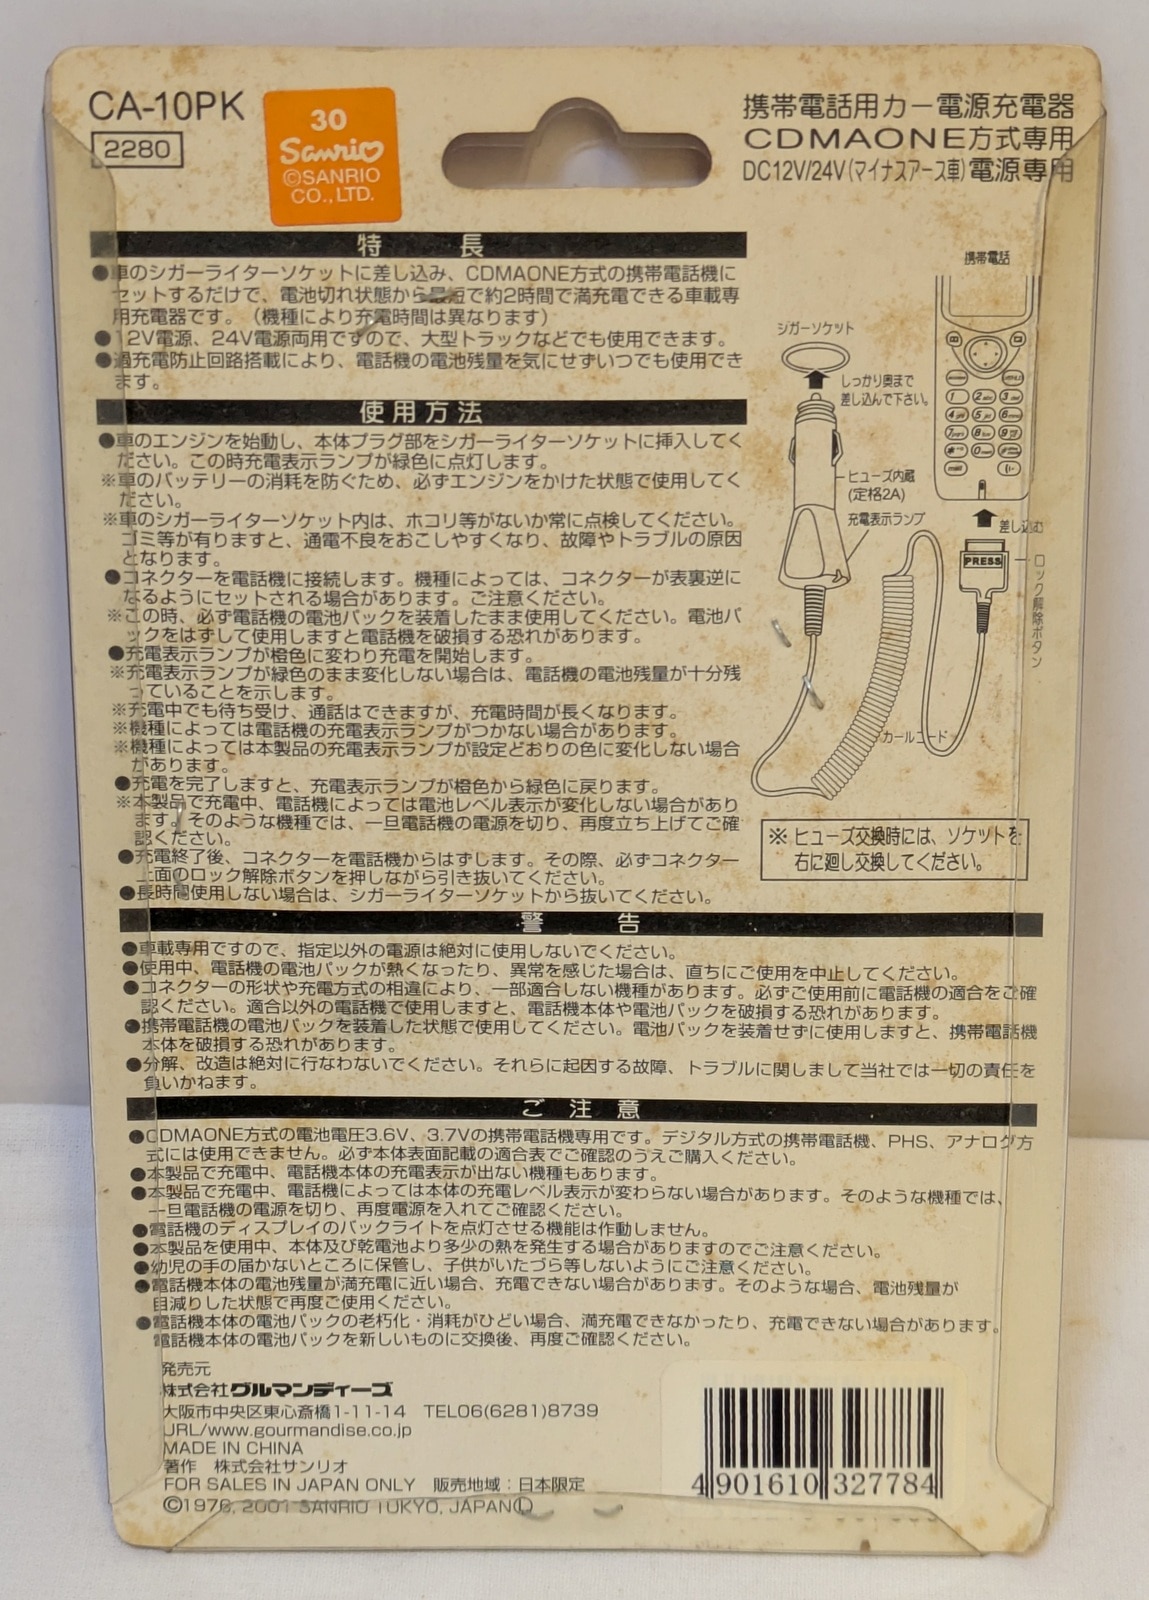 CA-10PK
2280
30
Sanrio
©SANRIO
CO.,LTD.
携帯電話用カー電源充電器
CDMAONE方式専用
DC12V/24V(マイナスアース車)電源専用
特長
●車のシガーライターソケットに差し込み、CDMAONE方式の携帯電話機に
セットするだけで、電池切れ状態から最短で約2時間で満充電できる車載専
用充電器です。(機種により充電時間は異なります)
●12V電源、24V電源両用ですので、大型トラックなどでも使用できます。
●過充電防止回路搭載により、電話機の電池残量を気にせずいつでも使用でき
ます。
使用方法
●車のエンジンを始動し、本体プラグ部をシガーライターソケットに挿入してく
ださい。この時充電表示ランプが緑色に点灯します。
※車のバッテリーの消耗を防ぐため、必ずエンジンをかけた状態で使用してく
ださい。
※車のシガーライターソケット内は、ホコリ等がないか常に点検してください。
ゴミ等が有りますと、通電不良をおこしやすくなり、故障やトラブルの原因
となります。
●コネクターを電話機に接続します。機種によっては、コネクターが表裏逆に
なるようにセットされる場合があります。ご注意ください。
※この時、必ず電話機の電池パックを装着したまま使用してください。電池パ
ックをはずして使用しますと電話機を破損する恐れがあります。
●充電表示ランプが橙色に変わり充電を開始します。
※充電表示ランプが緑色のまま変化しない場合は、電話機の電池残量が十分残
っていることを示します。
※充電中でも待ち受け、通話はできますが、充電時間が長くなります。
※機種によっては電話機の充電表示ランプがつかない場合があります。
※機種によっては本製品の充電表示ランプが設定どおりの色に変化しない場合
があります。
●充電を完了しますと、充電表示ランプが橙色から緑色に戻ります。
※本製品で充電中、電話機によっては電池レベル表示が変化しない場合があり
ます。そのような機種では、一旦電話機の電源を切り、再度立ち上げてご確
認ください。
●充電終了後、コネクターを電話機からはずします。その際、必ずコネクター
上面のロック解除ボタンを押しながら引き抜いてください。
●長時間使用しない場合は、シガーライターソケットから抜いてください。
携帯電話
シガーソケット
しっかり奥まで
差し込んで下さい。
ヒューズ内蔵
(定格2A)
充電表示ランプ
差し込む
PRESS
ロック解除ボタン
カールコード
※ ヒューズ交換時には、ソケットを
右に廻し交換してください。
警告
●車載専用ですので、指定以外の電源は絶対に使用しないでください。
●使用中、電話機の電池パックが熱くなったり、異常を感じた場合は、直ちにご使用を中止してください。
●コネクターの形状や充電方式の相違により、一部適合しない機種があります。必ずご使用前に電話機の適合をご確
認ください。適合以外の電話機で使用しますと、電話機本体や電池パックを破損する恐れがあります。
●携帯電話機の電池パックを装着した状態で使用してください。電池パックを装着せずに使用しますと、携帯電話機
本体を破損する恐れがあります。
●分解、改造は絶対に行なわないでください。それらに起因する故障、トラブルに関しまして当社では一切の責任を
負いかねます。
ご注意
●CDMAONE方式の電池電圧3.6V、3.7Vの携帯電話機専用です。デジタル方式の携帯電話機、PHS、アナログ方
式には使用できません。必ず本体表面記載の適合表でご確認のうえご購入ください。
●本製品で充電中、電話機本体の充電表示が出ない機種もあります。
●本製品で充電中、電話機によっては本体の充電レベル表示が変わらない場合があります。そのような機種では、
一旦電話機の電源を切り、再度電源を入れてご確認ください。
●電話機のディスプレイのバックライトを点灯させる機能は作動しません。
●本製品を使用中、本体及び乾電池より多少の熱を発生する場合がありますのでご注意ください。
●幼児の手の届かないところに保管し、子供がいたづら等しないようにご注意ください。
●電話機本体の電池残量が満充電に近い場合、充電できない場合があります。そのような場合、電池残量が
目減りした状態で再度ご使用ください。
●電話機本体の電池パックの老朽化・消耗がひどい場合、満充電できなかったり、充電できない場合があります。
電話機本体の電池パックを新しいものに交換後、再度ご確認ください。
発売元
株式会社グルマンディーズ
大阪市中央区東心斎橋1-11-14 TEL06(6281)8739
URL/www.gourmandise.co.jp
MADE IN CHINA
著作 株式会社サンリオ
FOR SALES IN JAPAN ONLY 販売地域：日本限定
©1976, 2001 SANRIO TOKYO, JAPAN Ⓛ
4 901610 327784